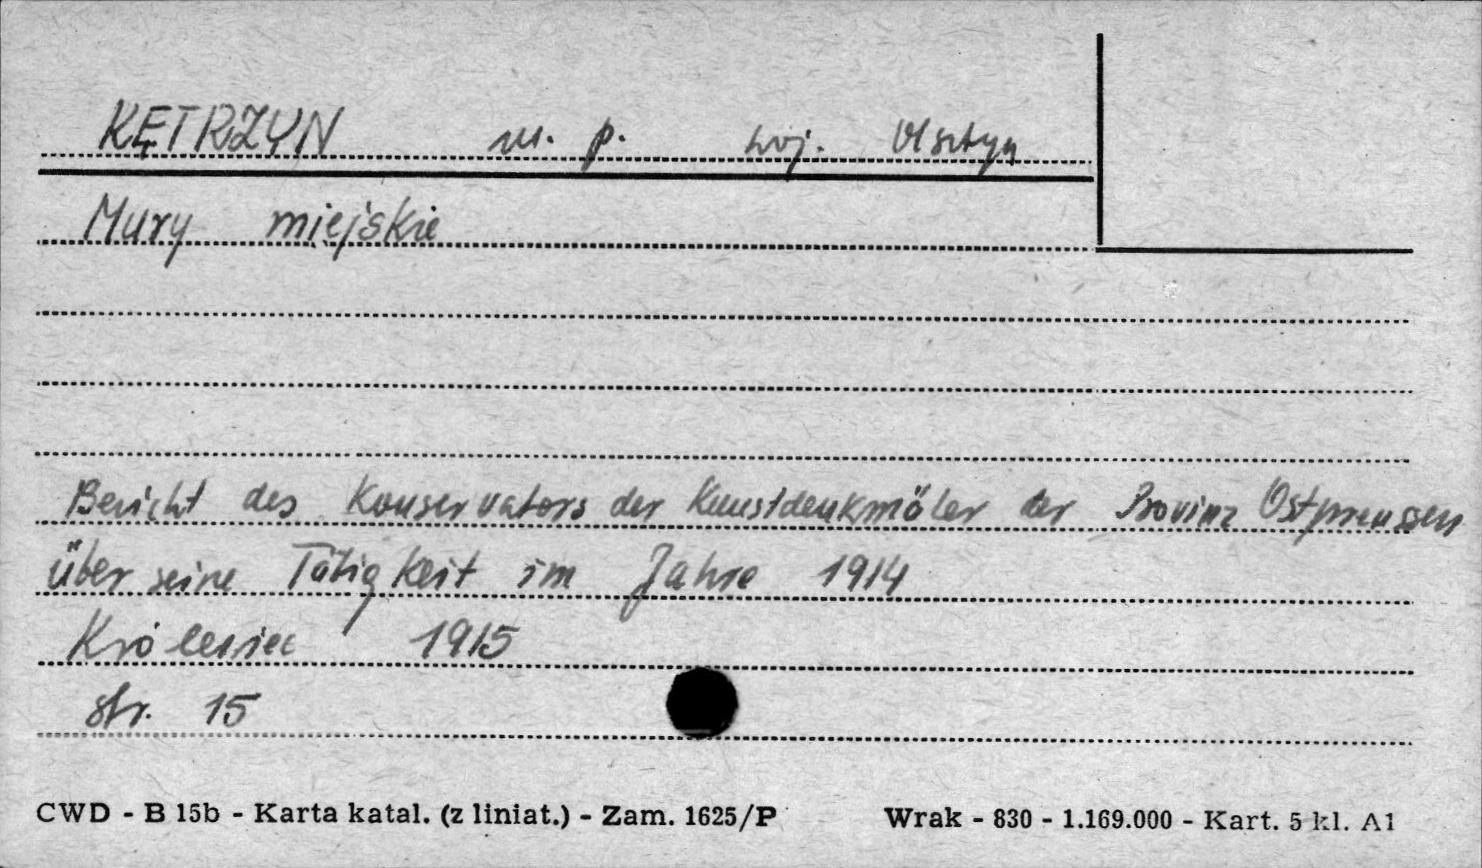 KĘTRZYN m. p. woj. Olsztyn
Mury miejskie
Bericht des Konservators der Kunstdenkmäler der Provinz Ostpreussen
über seine Tätigkeit im Jahre 1914
Królewiec 1915
str. 15
CWD - B 15b - Karta katal. (z liniat.) - Zam. 1625/P Wrak - 830 - 1.169.000 - Kart. 5 kl. A1